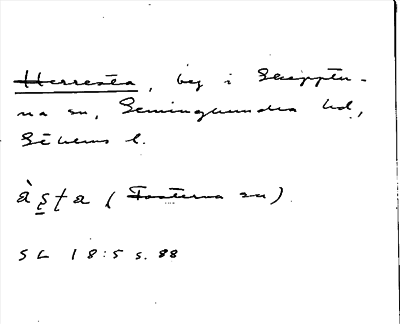 Herresta, by i Skepptu-
na sn, Seminghundra hd,
Sthlms l.
àʂʈa (Fasterna sn)
SL 18:5 s. 88